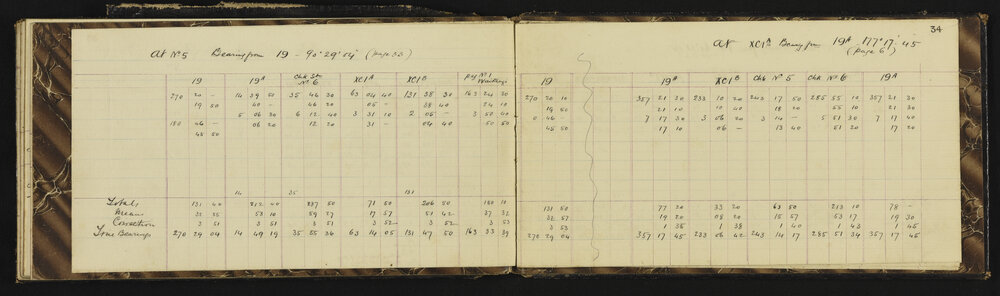 34
At No 5 Bearing from 19 - 90° 29' 04" (page 33)
19 19A Chk Stn No 6 XC1A XC1B Peg No 1
270 20 - 14 39 50 35 46 30 63 04 40 131 38 30 163 24 20
19 50 40 - 46 20 05 - 38 40 24 10
5 06 20 6 12 40 3 31 10 2 05 - 3 50 40
180 46 - 06 20 12 20 31 - 04 40 50 50
45 50
14 35 131
Totals 131 40 212 40 237 50 71 50 206 50 150 10
Means 32 55 53 10 59 27 17 57 51 42 37 32
Correction 3 51 3 51 3 51 3 52 3 52 3 53
True Bearings 270 29 04 14 49 19 35 55 36 63 14 05 131 47 50 163 33 39
At XC1A Bearing from 19A 177° 17' 45"
(page 6)
19 19A XC1B Chk No 5 Chk No 6 19A
270 20 10 357 21 30 233 10 20 243 17 50 285 55 10 357 21 30
19 50 21 10 10 40 18 20 55 10 21 30
0 46 - 7 17 30 3 06 20 3 14 - 5 51 30 7 17 40
45 50 17 10 06 - 13 40 51 20 17 20
131 50 77 20 33 20 63 50 213 10 78 -
32 57 19 20 08 20 15 57 53 17 19 30
3 53 1 35 1 38 1 40 1 43 1 45
270 29 04 357 17 45 233 06 42 243 14 17 285 51 34 357 17 45